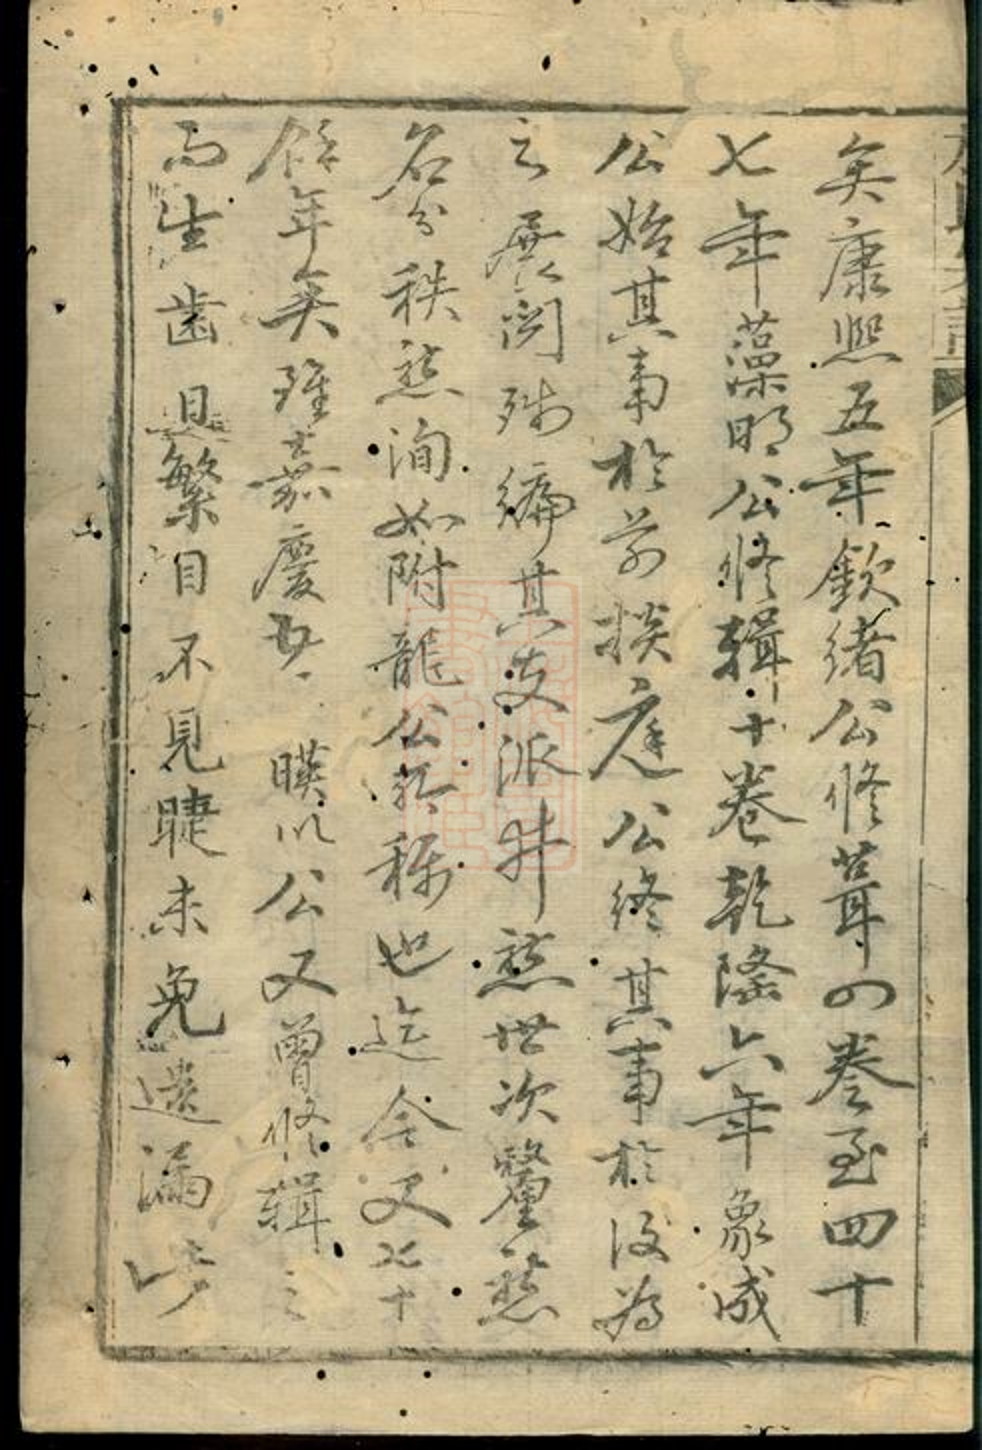 矣康熙五年欽緒公修葺四卷至四十
七年藻明公修輯十卷乾隆六年象成
公始其事於前掞庭公終其事於後為
之展閱殘編其支派井然世次釐然
名分秩然洵如附龍公所稱也迄今又六十
餘年矣雖嘉慶 暎以公又曾修輯之
而生齒日繁目不見睫未免遺漏